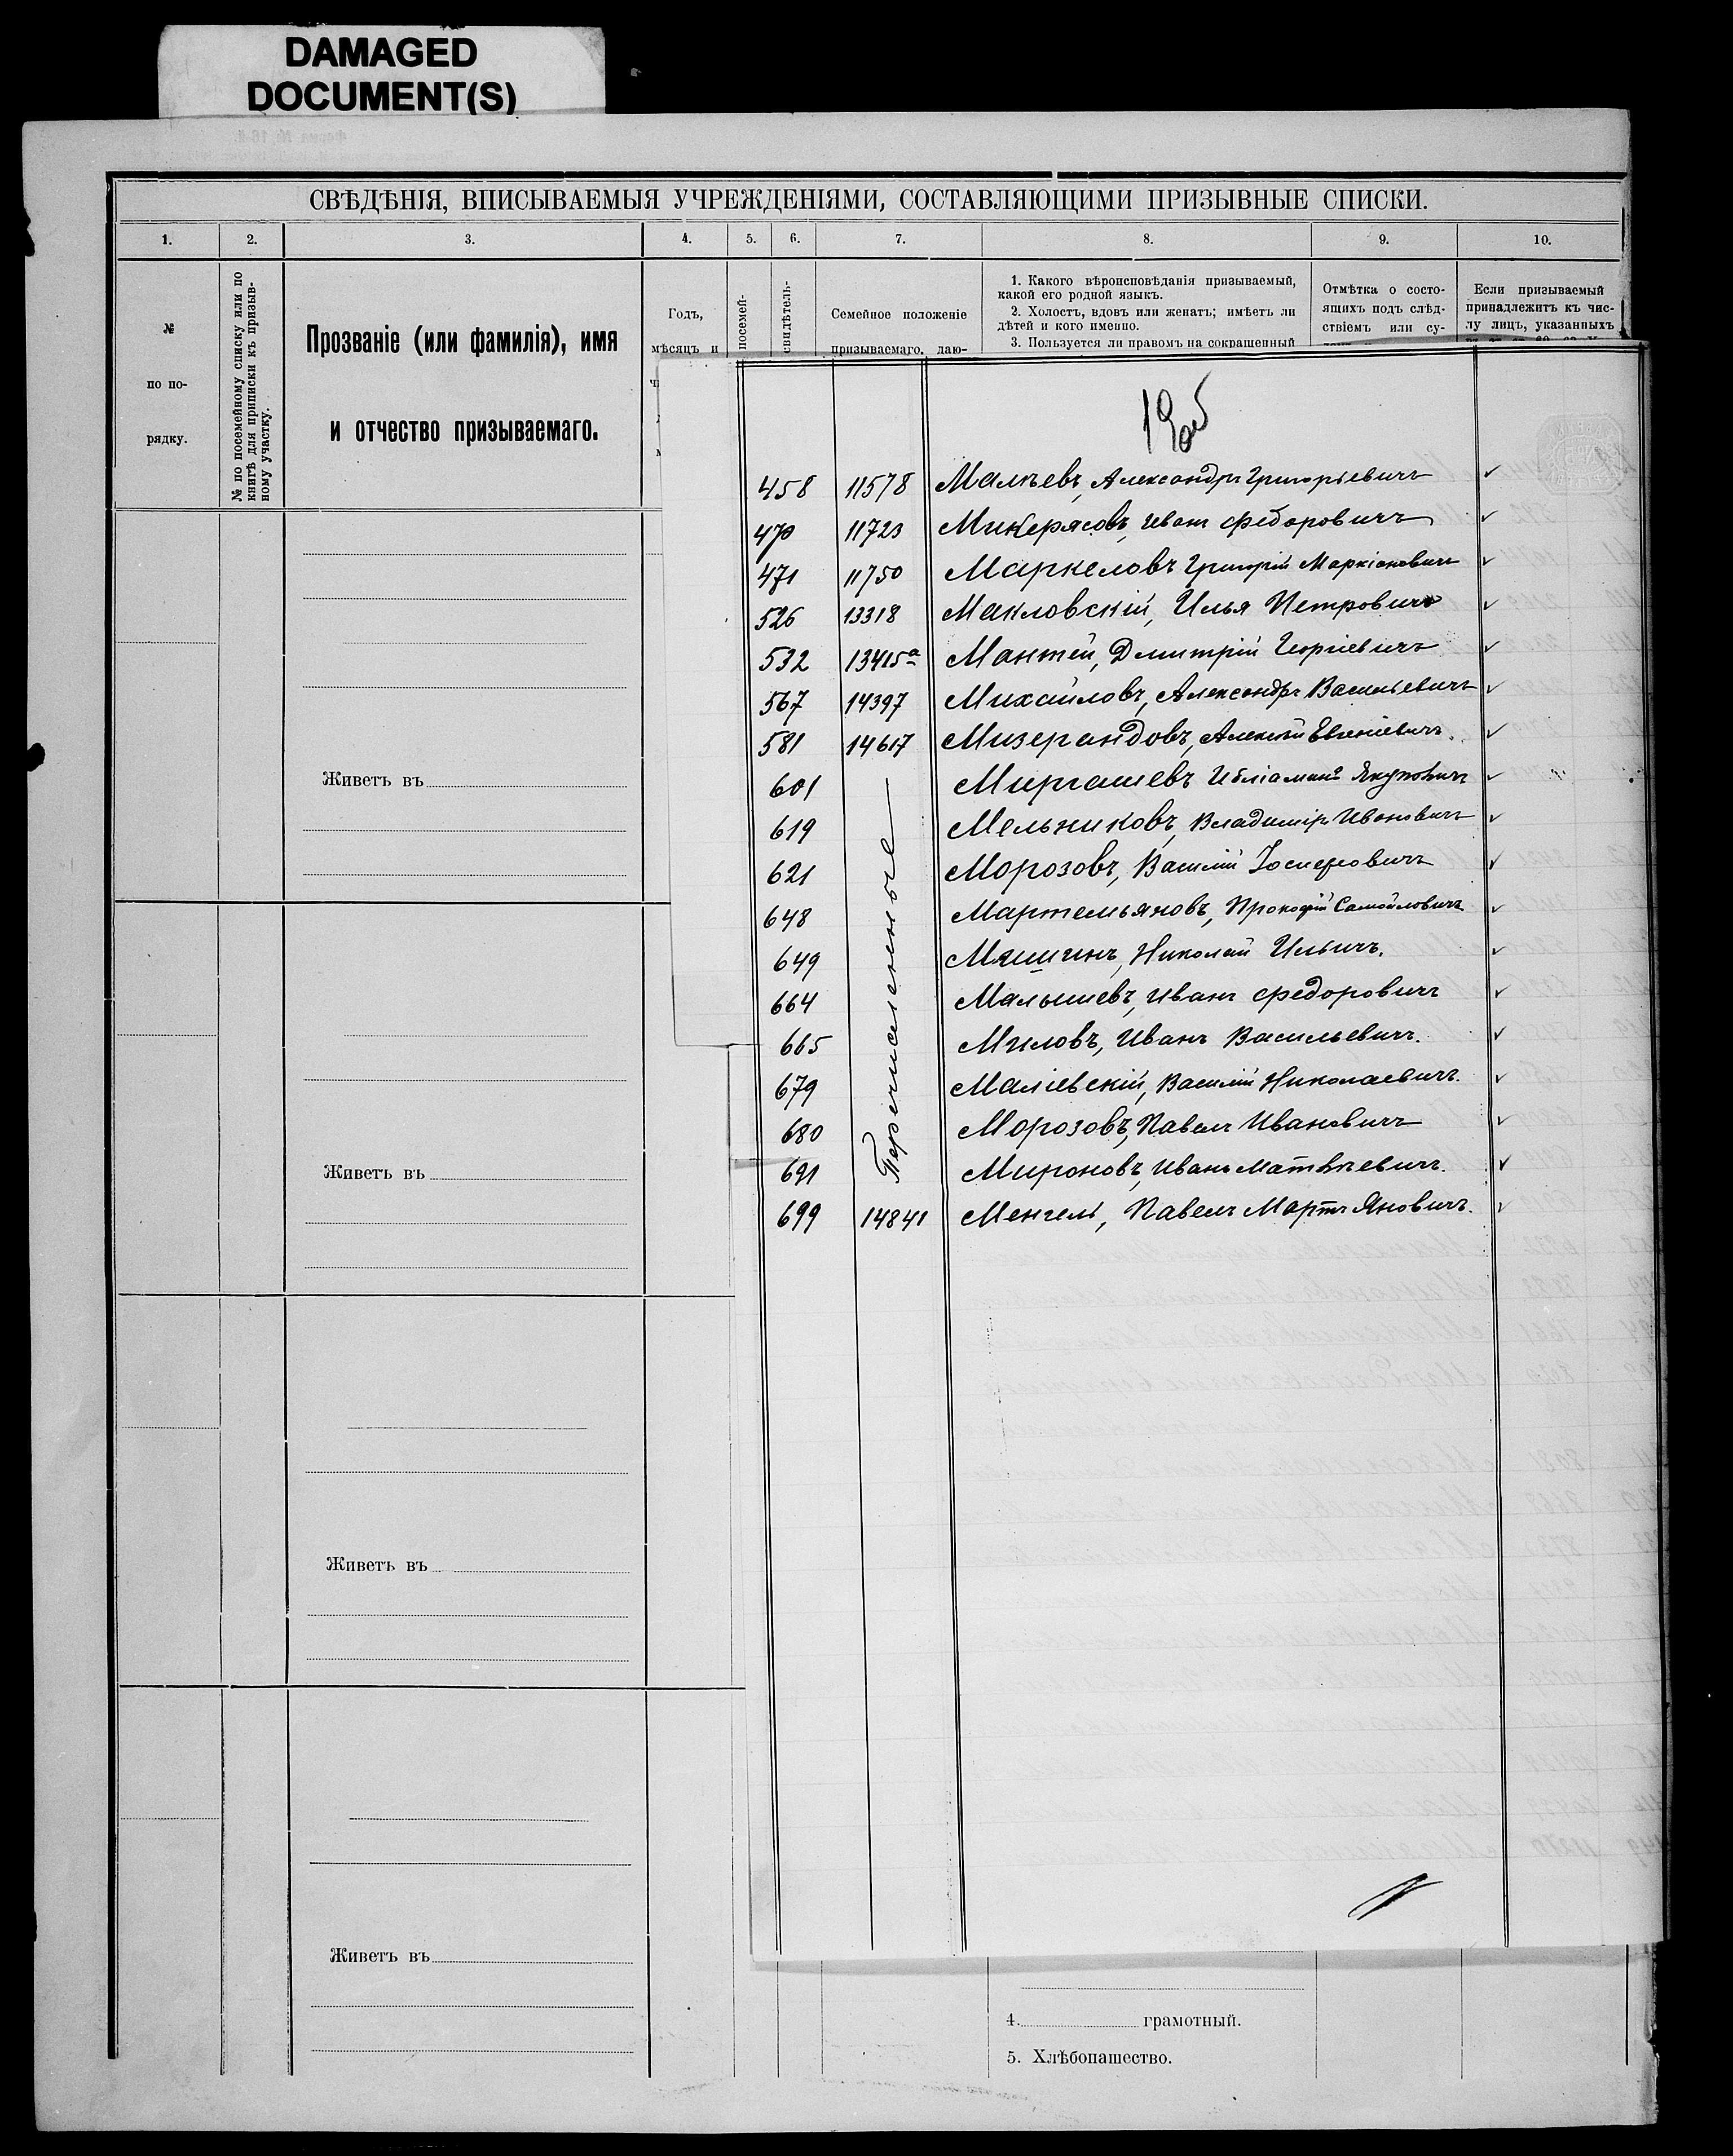 DAMAGED
DOCUMENT(S)
СВѢДѢНІЯ, ВПИСЫВАЕМЫЯ УЧРЕЖДЕНІЯМИ, СОСТАВЛЯЮЩИМИ ПРИЗЫВНЫЕ СПИСКИ.
1. 2. 3. 4. 5. 6. 7. 8. 9. 10.
№
по по-
рядку.
№ по посемейному списку или по
книгѣ для приписки къ призыв-
ному участку.
Прозваніе (или фамилія), имя
и отчество призываемаго.
Годъ,
мѣсяцъ и
посемей-
свидѣтель-
Семейное положеніе
призываемаго, даю-
1. Какого вѣроисповѣданія призываемый,
какой его родной языкъ.
2. Холостъ, вдовъ или женатъ; имѣетъ ли
дѣтей и кого именно.
3. Пользуется ли правомъ на сокращенный
Отмѣтка о состо-
ящихъ подъ слѣд-
ствіемъ или су-
Если призываемый
принадлежитъ къ чис-
лу лицъ, указанныхъ
19об
458 11578 Малѣевъ, Александръ Григорьевичъ ✓
470 11723 Микерясовъ, Иванъ Федоровичъ ✓
471 11750 Маркеловъ Григорій Маркіановичъ ✓
526 13318 Макловскій, Илья Петровичъ ✓
532 13415а Мантей, Дмитрій Георгіевичъ ✓
567 14397 Михайловъ, Александръ Васильевичъ ✓
581 14617 Мизерандовъ, Алексѣй Евгеніевичъ. ✓
601 Миргашевъ Ибліаминъ Якуповичъ ✓
619 Мельниковъ, Владиміръ Ивановичъ ✓
621 Морозовъ, Василій Іосифовичъ ✓
648 Мартемьяновъ, Прокофій Самойловичъ ✓
649 Мяшинъ, Николай Ильичъ. ✓
664 Малышевъ, Иванъ Федоровичъ ✓
665 Миловъ, Иванъ Васильевичъ. ✓
679 Маліевскій, Василій Николаевичъ. ✓
680 Морозовъ, Павелъ Ивановичъ ✓
691 Мироновъ, Иванъ Матвѣевичъ. ✓
699 14841 Менгель, Павелъ Мартъ Яновичъ. ✓
Перечисленные
Живетъ въ
Живетъ въ
Живетъ въ
Живетъ въ
4. грамотный.
5. Хлѣбопашество.